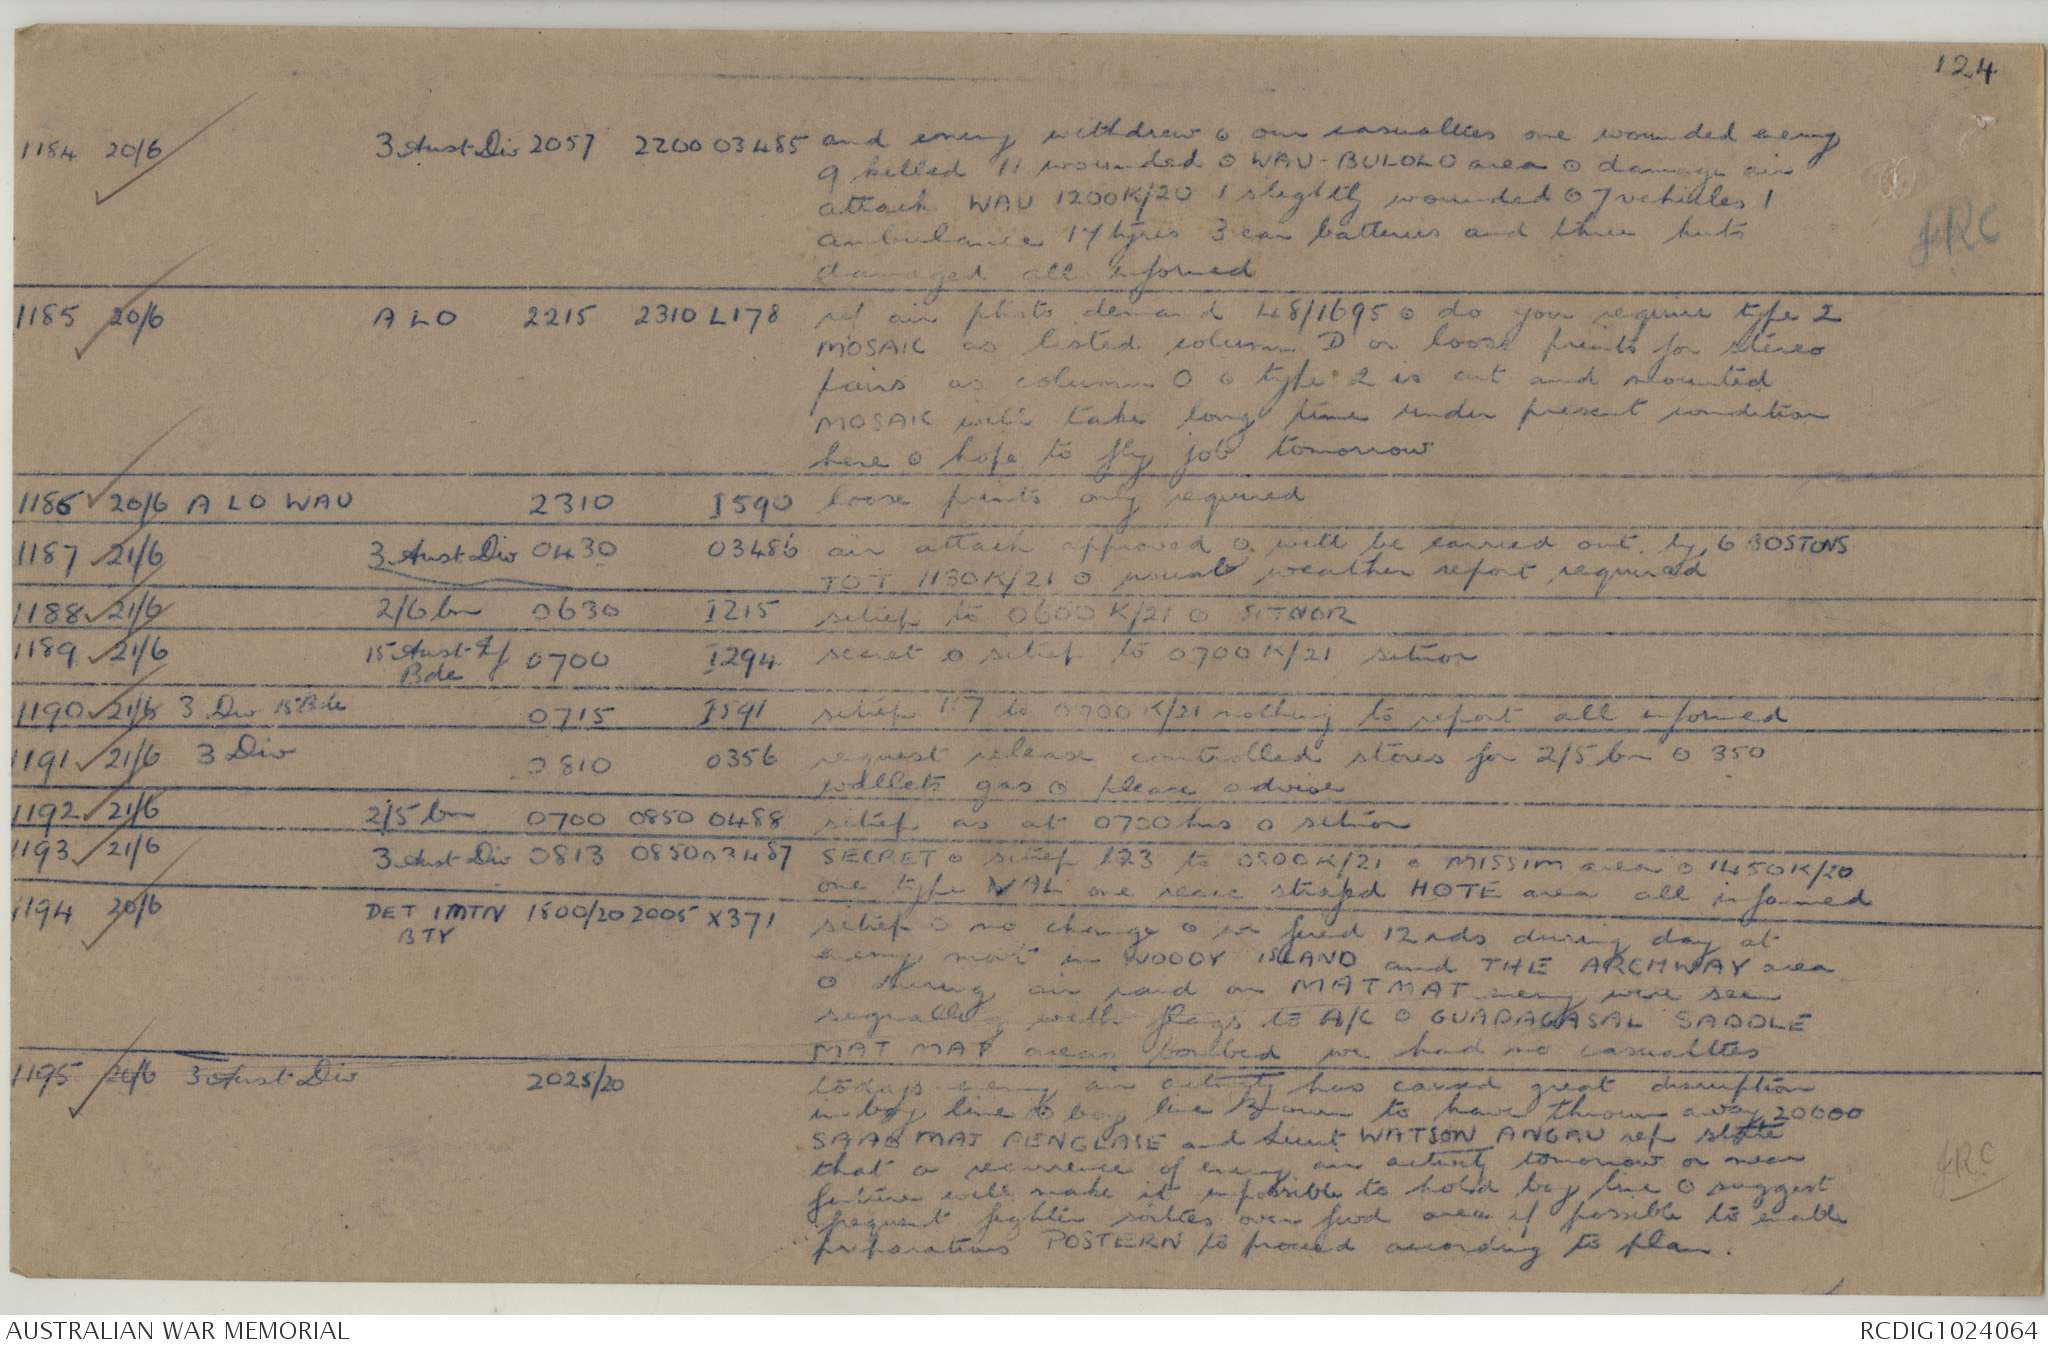 124
1184 20/6 3 Aust Div 2057 2200 03485 and enemy withdrew o our casualties one wounded enemy
9 killed 11 wounded o WAU-BULOLO area o damage air
attack WAU 1200K/20 1 slightly wounded o 7 vehicles 1
ambulance 14 tyres 3 car batteries and three huts
damaged all informed
JRC
1185 20/6 A L O 2215 2310 L178 ref air photo demand 48/1695 o do you require type 2
MOSAIC as listed column D or loose prints for stereo
pairs as column O o type 2 is cut and mounted
MOSAIC will take long time under present condition
here o hope to fly job tomorrow
1186 20/6 A LO WAU 2310 I590 loose prints only required
1187 21/6 3 Aust Div 0430 03486 air attack approved o will be carried out by 6 BOSTONS
TOT 1130K/21 o usual weather report required
1188 21/6 2/6 bn 0630 I215 sitrep to 0600 K/21 o SITNOR
1189 21/6 15 Aust Inf Bde 0700 I294 secret o sitrep to 0700 K/21 sitnor
1190 21/6 3 Div 15 Bde 0715 I591 sitrep 117 to 0700 K/21 nothing to report all informed
1191 21/6 3 Div 0810 0356 request release controlled stores for 2/5 bn o 350
wallets gas o please advise
1192 21/6 2/5 bn 0700 0850 0488 sitrep as at 0700 hrs o sitnor
1193 21/6 3 Aust Div 0813 0850 03487 SECRET o sitrep 123 to 0800K/21 o MISSIM area o 1450K/20
one type VAL one recce strafed HOTE area all informed
1194 20/6 DET 1 MTN BTY 1800/20 2005 X371 sitrep o no change o we fired 12 rds during day at
enemy mort in WOODY ISLAND and THE ARCHWAY area
o during air raid on MATMAT enemy were seen
signalling with flags to A/C o GUADAGASAL SADDLE
MAT MAT areas bombed we had no casualties
1195 20/6 3 Aust Div 2025/20 todays enemy air activity has caused great disruption
in boy line o boy line known to have thrown away 20000
SAAB MAJ PENGLASE and Lieut WATSON ANGAU rep state
that a recurrence of enemy air activity tomorrow or near
future will make it impossible to hold boy line o suggest
frequent fighter sorties over fwd area if possible to enable
preparations POSTERN to proceed according to plan.
JRC
AUSTRALIAN WAR MEMORIAL RCDIG1024064